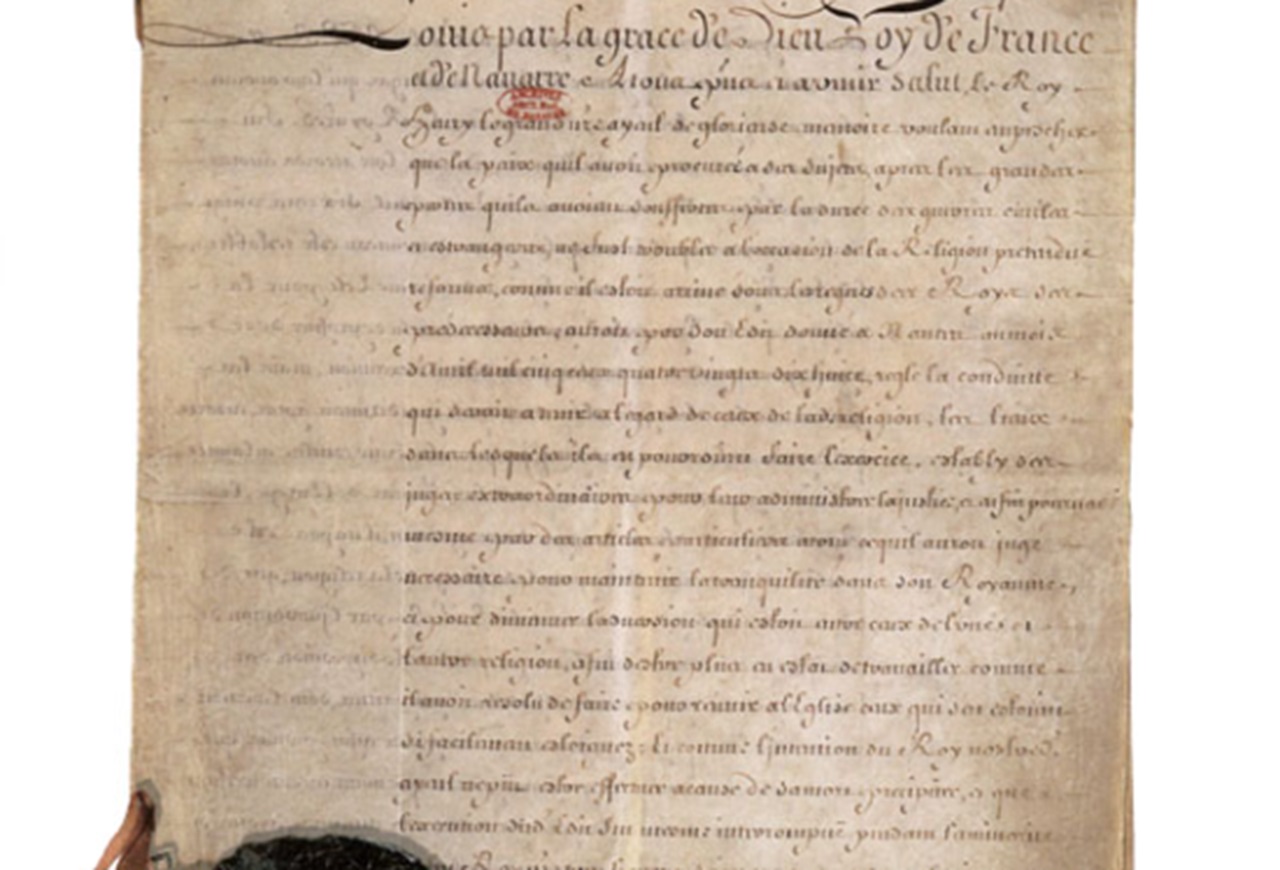 Louis par la grace de Dieu Roy de France
et de Navarre a tous p̃ns et a venir Salut, Le Roy
Henry le grand nr̃e ayeul de glorieuse memoire voulant empescher
que la paix quil avoit procurée a ses sujets, apres les grandes
pertes quils avoient souffertes par la durée des guerres civiles
et estrangeres, ne fust troublée a l'occasion de la Religion pretendue
reformée, comme il estoit arrivé sous les regnes des Roys ses
predecesseurs, auroit par son Edit donné a Nantes au mois
d'avril mil cinq cens quatre vingts dix huict, reglé la conduitte
qui seroit a tenir a legard de ceux de lad. religion, les lieux
dans lesquels ils en pourroient faire l'exercice, estably des
juges extraordinaires pour leur administrer la justice, et enfin pourveu
mesme par des articles particuliers a tout ce quil auroit jugé
necessaire pour maintenir la tranquilité dans son Royaume,
et pour diminuer l'aversion qui estoit entre ceux de l'une et
l'autre religion, afin d'estre plus en estat de travailler comme
il avoit resolu de faire pour reunir a l'Eglise ceux qui s'en estoient
si facilement esloignez: Et comme l'intention du Roy nostred.
ayeul ne put estre effectuée a cause de sa mort precipitée, et que
l'execution dud. Edit fut mesme interrompuë pendant la minorité